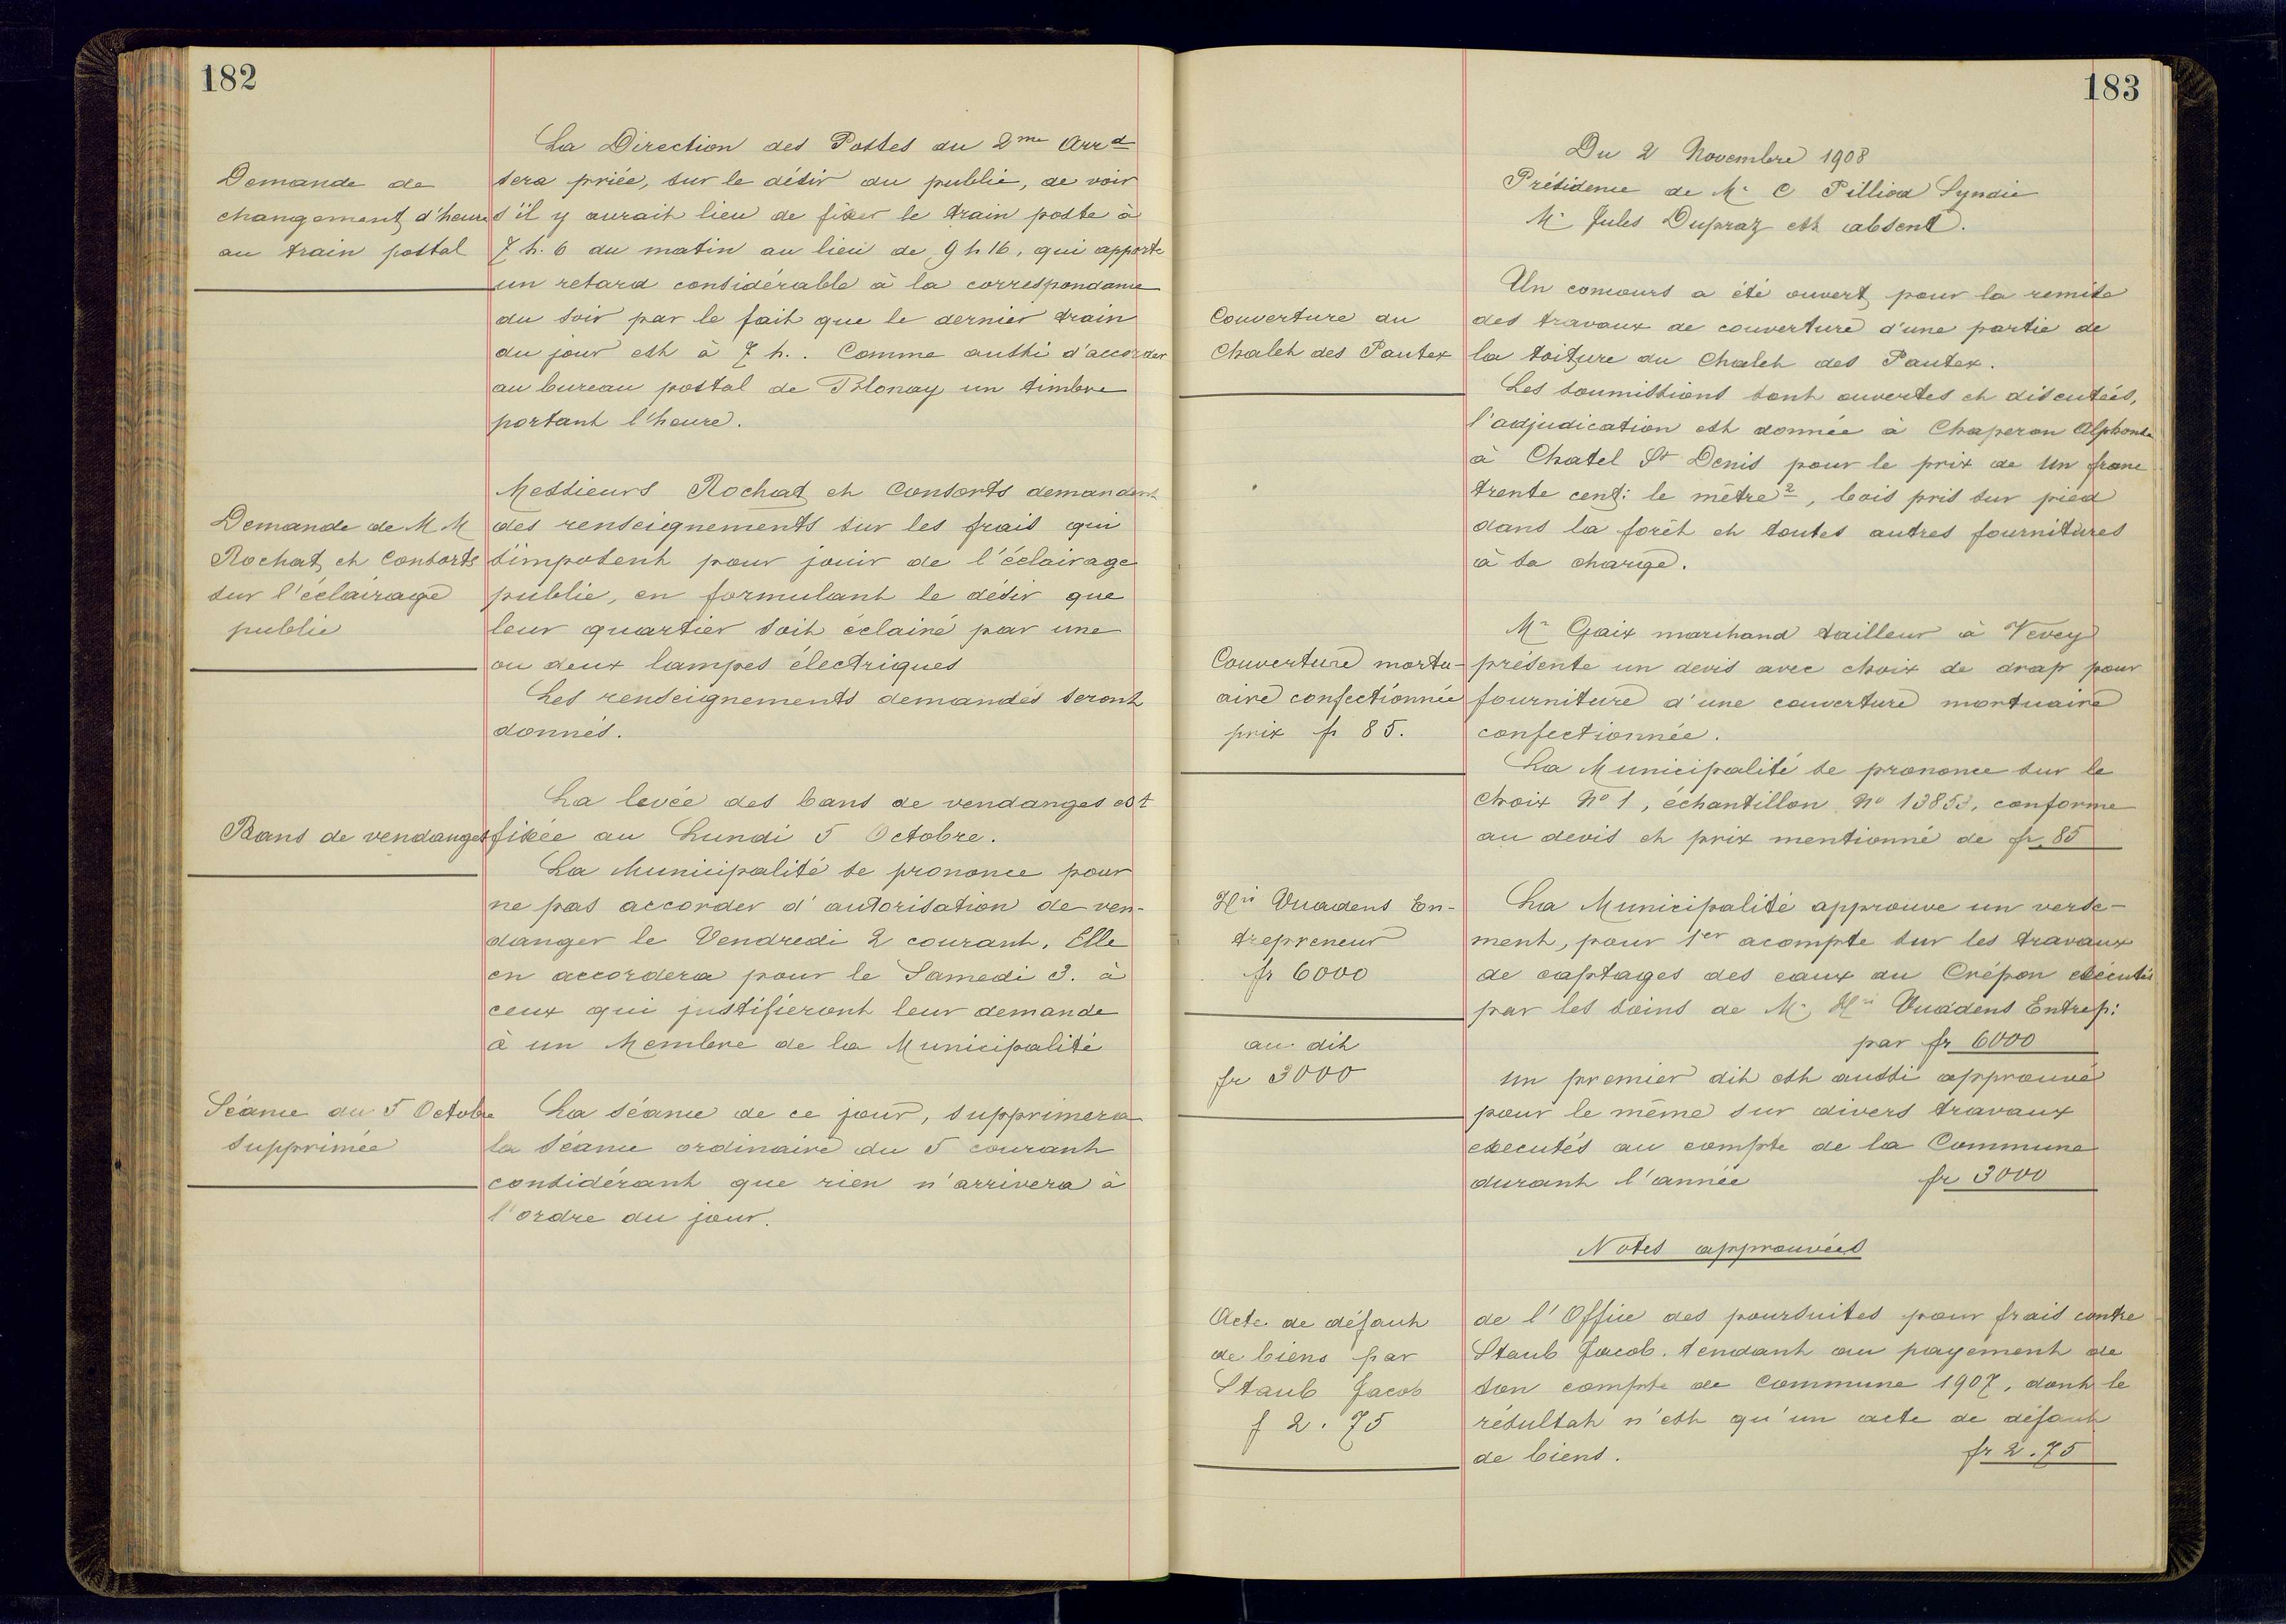 182
Demande de
changement d'heure
au train postal
La Direction des Postes du 2me Arrd
sera priée, sur le désir du public, de voir
s'il y aurait lieu de fixer le train poste à
7 h. 6 du matin au lieu de 9 h 16, qui apporte
un retard considérable à la correspondance
du soir par le fait que le dernier train
du jour est à 7 h.. Comme aussi d'accorder
au bureau postal de Blonay un timbre
portant l'heure.
Demande de M M
Rochat et Consorts
sur l'éclairage
public
Messieurs Rochat et Consorts demandent
des renseignements sur les frais qui
s'imposent pour jouir de l'éclairage
public, en formulant le désir que
leur quartier soit éclairé par une
ou deux lampes électriques
Les renseignements demandés seront
donnés.
Bans de vendanges
La levée des bans de vendanges est
fixée au Lundi 5 Octobre.
La Municipalité se prononce pour
ne pas accorder d'autorisation de ven-
danger le Vendredi 2 courant. Elle
en accordera pour le Samedi 3. à
ceux qui justifieront leur demande
à un Membre de la Municipalité
Séance du 5 Octobre
supprimée
La séance de ce jour, supprimera
la séance ordinaire du 5 courant
considérant que rien n'arrivera à
l'ordre du jour.
183
Du 2 Novembre 1908
Présidence de Mr C Pilliod Syndic
Mr Jules Dupraz est absent.
Couverture du
Chalet des Pautex
Un concours a été ouvert pour la remise
des travaux de couverture d'une partie de
la toiture du Chalet des Pautex.
Les soumissions sont ouvertes et discutées,
l'adjudication est donnée à Chaperon Alphonse
à Chatel St Denis pour le prix de Un franc
trente cent: le mètre 2, bois pris sur pied
dans la forêt et toutes autres fournitures
à sa charge.
Couverture mortu-
aire confectionnée
prix fr 85.
Mr Gaix marchand tailleur à Vevey
présente un devis avec choix de drap pour
fourniture d'une couverture mortuaire
confectionnée.
La Municipalité se prononce sur le
choix No 1, échantillon No 13853, conforme
au devis et prix mentionné de fr. 85
Hri Vuadens En-
trepreneur
fr 6000
La Municipalité approuve un verse-
ment, pour 1er acompte sur les travaux
de captages des eaux du Crépon exécutés
par les soins de Mr Hri Vuadens Entrep:
par fr 6000
au dit
fr 3000
Un premier dit est aussi approuvé
pour le même sur divers travaux
executés au compte de la Commune
durant l'année fr 3000
Notes approuvées
Acte de défaut
de biens par
Staub Jacob
f 2.75
de l'Office des poursuites pour frais contre
Staub Jacob. tendant au payement de
son compte de Commune 1907, dont le
résultat n'est qu'un acte de défaut
de biens. fr 2.75